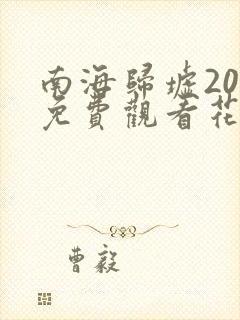 南海歸墟20
免費觀看花
曹毅